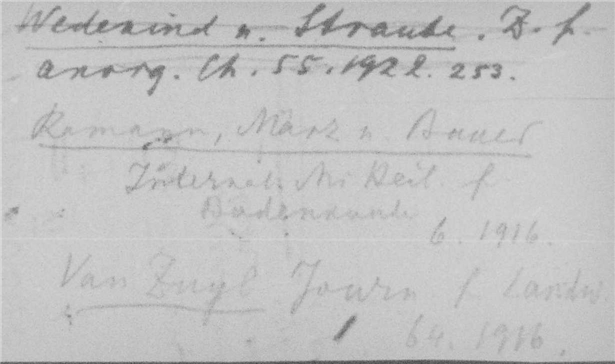 Wedekind u. Straube. Z. f.
anorg. Ch. 55. 1922. 253.
Ramann, März u. Bauer
Internat. Mitteil. f
Bodenkunde
6. 1916.
Van Zuyl Journ. f. Landw
64. 1916.